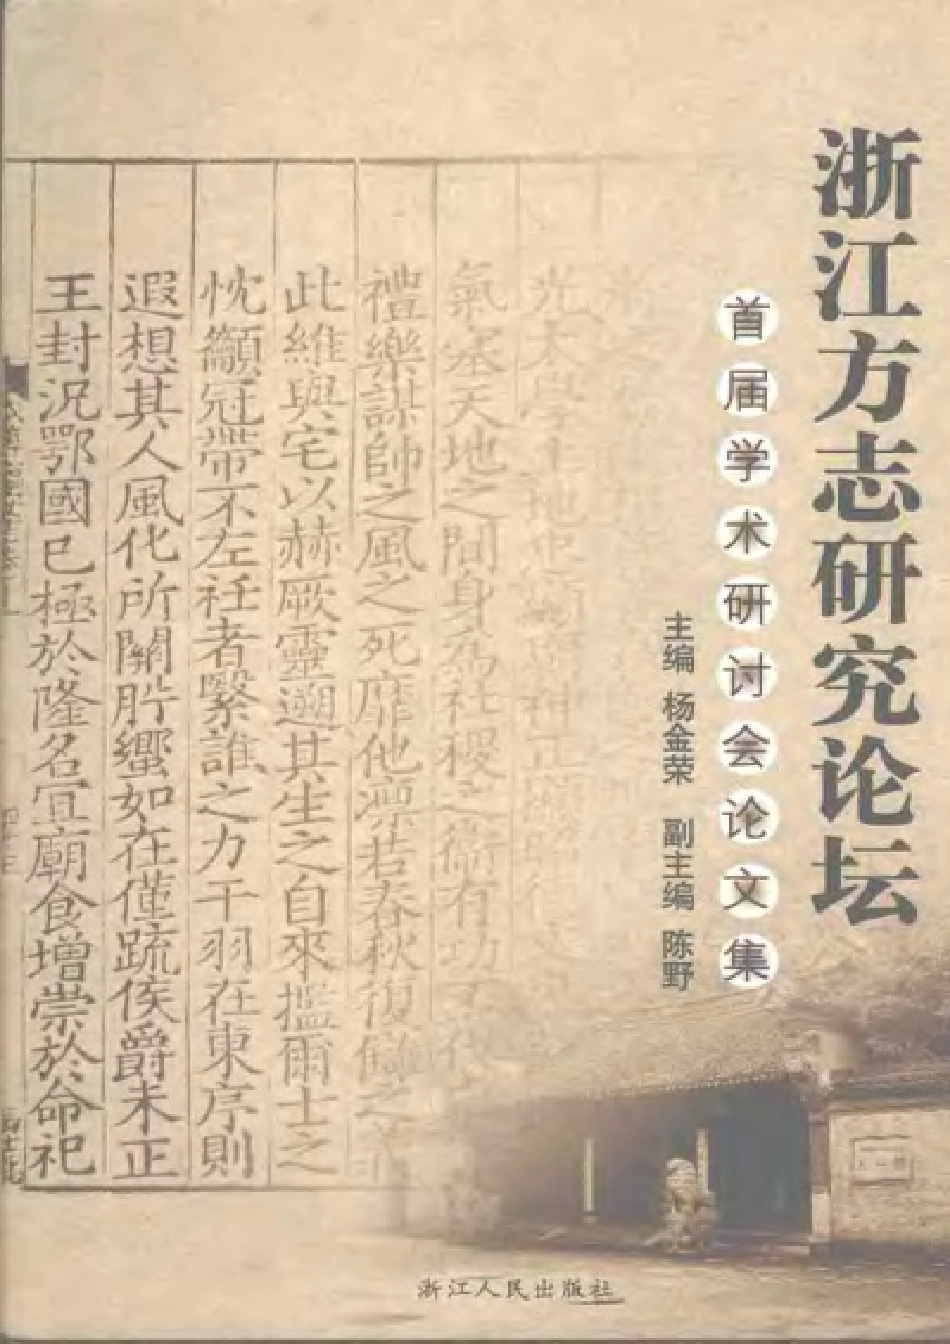 浙江方志研究论坛
首届学术研讨会论文集
主编 杨金荣 副主编 陈野
氣塞天地之間身爲社稷之衛有功
禮樂謀帥之風之死靡他凛若春秋復讎之
此維與宅以赫厥靈遡其生之自來搵爾士之
忱顲冠帶不左衽者繄誰之力干羽在東序則
遐想其人風化所關肸蠁如在僅疏侯爵未正
王封况鄂國已極於隆名宜廟食增崇於命祀
浙江人民出版社